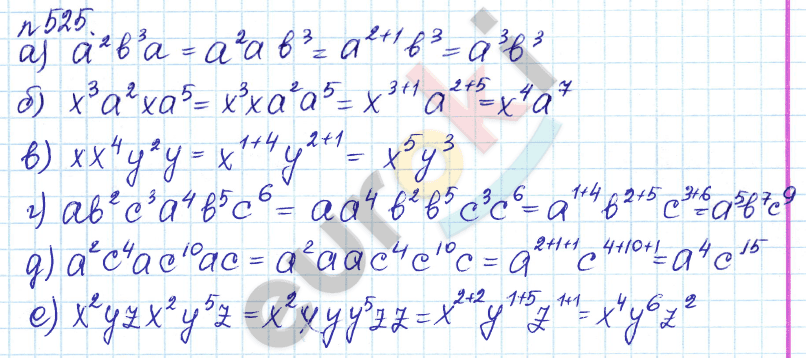 n 525.
а) a²b³a = a²a b³ = a²⁺¹b³ = a³b³
б) x³a²xa⁵ = x³xa²a⁵ = x³⁺¹a²⁺⁵ = x⁴a⁷
в) xx⁴y²y = x¹⁺⁴y²⁺¹ = x⁵y³
г) ab²c³a⁴b⁵c⁶ = aa⁴ b²b⁵ c³c⁶ = a¹⁺⁴b²⁺⁵c³⁺⁶ = a⁵b⁷c⁹
д) a²c⁴ac¹⁰ac = a²aac⁴c¹⁰c = a²⁺¹⁺¹c⁴⁺¹⁰⁺¹ = a⁴c¹⁵
е) x²yzx²y⁵z = x²yyy⁵zz = x²⁺²y¹⁺⁵z¹⁺¹ = x⁴y⁶z²
euroki